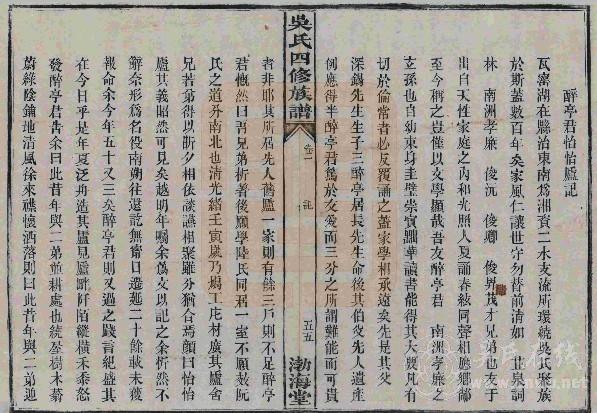 醉亭君怡怡廬記
瓦窰湖在縣治東南爲湘資二水支流所環繞吳氏聚族
於斯蓋數百年矣家風仁讓世守勿替前清如 芷泉詞
林 南洲孝廉 俊沅 俊卿 俊昇茂才兄弟也友于
出自天性家庭之內和光照人夏誦春絃同聲相應鄉鄰
至今稱之豈僅以文學顯哉吾友醉亭君 南洲孝廉之
支孫也自幼束身圭璧崇實黜華讀書能得其大要凡有
切於倫常者必反覆誦之蓋家學相承遠矣先是其父
深錫先生生子三醉亭居長先生命後其伯父先人遺產
例應得半醉亭君篤於友愛而三分之所謂難能而可貴
吳氏四修族譜
卷一 記
五五
渤海堂
者非耶其所居先人舊廬一家則有餘三戶則不足醉亭
君慨然曰吾兄弟析著後願學陸氏同居一室不願效阮
氏之道分南北也清光緒壬寅歲乃鳩工庀材廣其廬舍
兄若弟得以昕夕相依談讌相聚雖分猶合焉顏曰怡怡
廬其義昭然可見矣越明年囑余爲文以記之余忻然不
辭奈形爲名役南朔往還訖無甯日遷延二十餘載未獲
報命余今年五十又三矣醉亭君則又過之踐言紀盛其
在今日乎是年夏泛舟造其廬見廬畔阡陌縱橫禾黍悠
發醉亭君告余曰此昔年與二弟並耕處也繞屋樹木蓊
蔚綠陰鋪地清風徐來襟懷洒落則曰此昔年與二弟迎